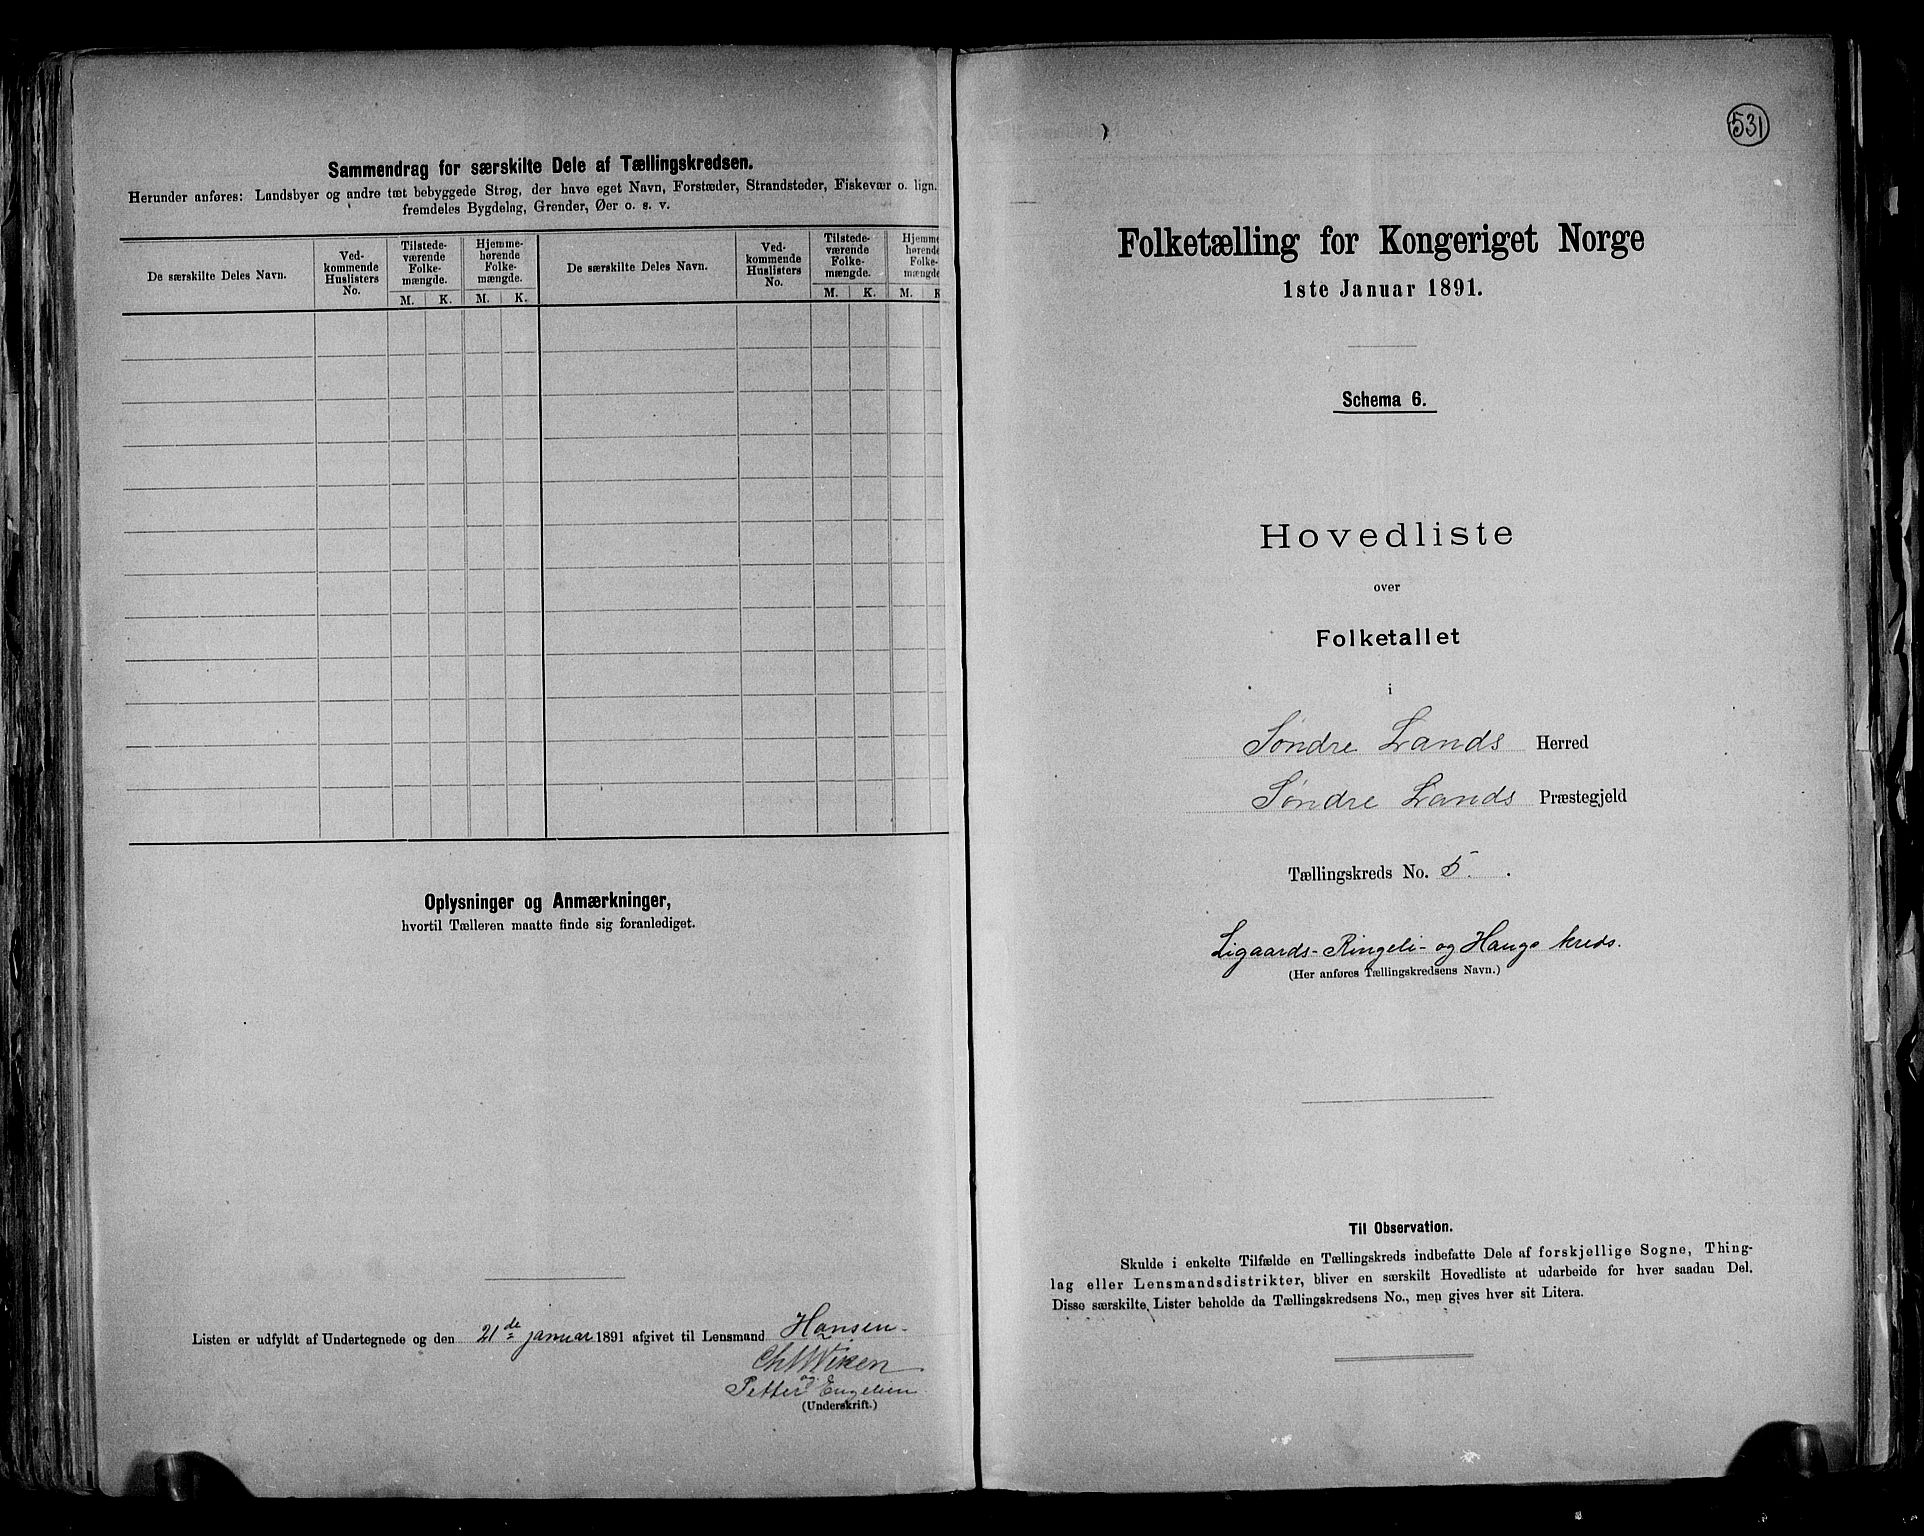 Sammendrag for særskilte Dele af Tællingskredsen.
Herunder anføres: Landsbyer og andre tæt bebyggede Strøg, der have eget Navn, Forstæder, Strandsteder, Fiskevær o. lign.
fremdeles Bygdelag, Grender, Øer o. s. v.
De særskilte Deles Navn.
Ved-
kommende
Huslisters
No.
Tilstede-
værende
Folke-
mængde.
M. K.
Hjemme-
hørende
Folke-
mængde.
M. K.
De særskilte Deles Navn.
Ved-
kommende
Huslisters
No.
Tilstede-
værende
Folke-
mængde.
M. K.
Hjemme
hørende
Folke-
mængde
M. K
Oplysninger og Anmærkninger,
hvortil Tælleren maatte finde sig foranlediget.
Listen er udfyldt af Undertegnede og den 21de januar 1891 afgivet til Lensmand Hansen
Ch Wiken
og
Petter Engelien
(Underskrift.)
531
Folketælling for Kongeriget Norge
1ste Januar 1891.
Schema 6.
Hovedliste
over
Folketallet
i
Søndre Lands Herred
Søndre Lands Præstegjeld
Tællingskreds No. 5.
Ligaards- Ringeli- og Haugs kreds.
(Her anføres Tællingskredsens Navn.)
Til Observation.
Skulde i enkelte Tilfælde en Tællingskreds indbefatte Dele af forskjellige Sogne, Thing-
lag eller Lensmandsdistrikter, bliver en særskilt Hovedliste at udarbeide for hver saadan Del.
Disse særskilte Lister beholde da Tællingskredsens No., men gives hver sit Litera.